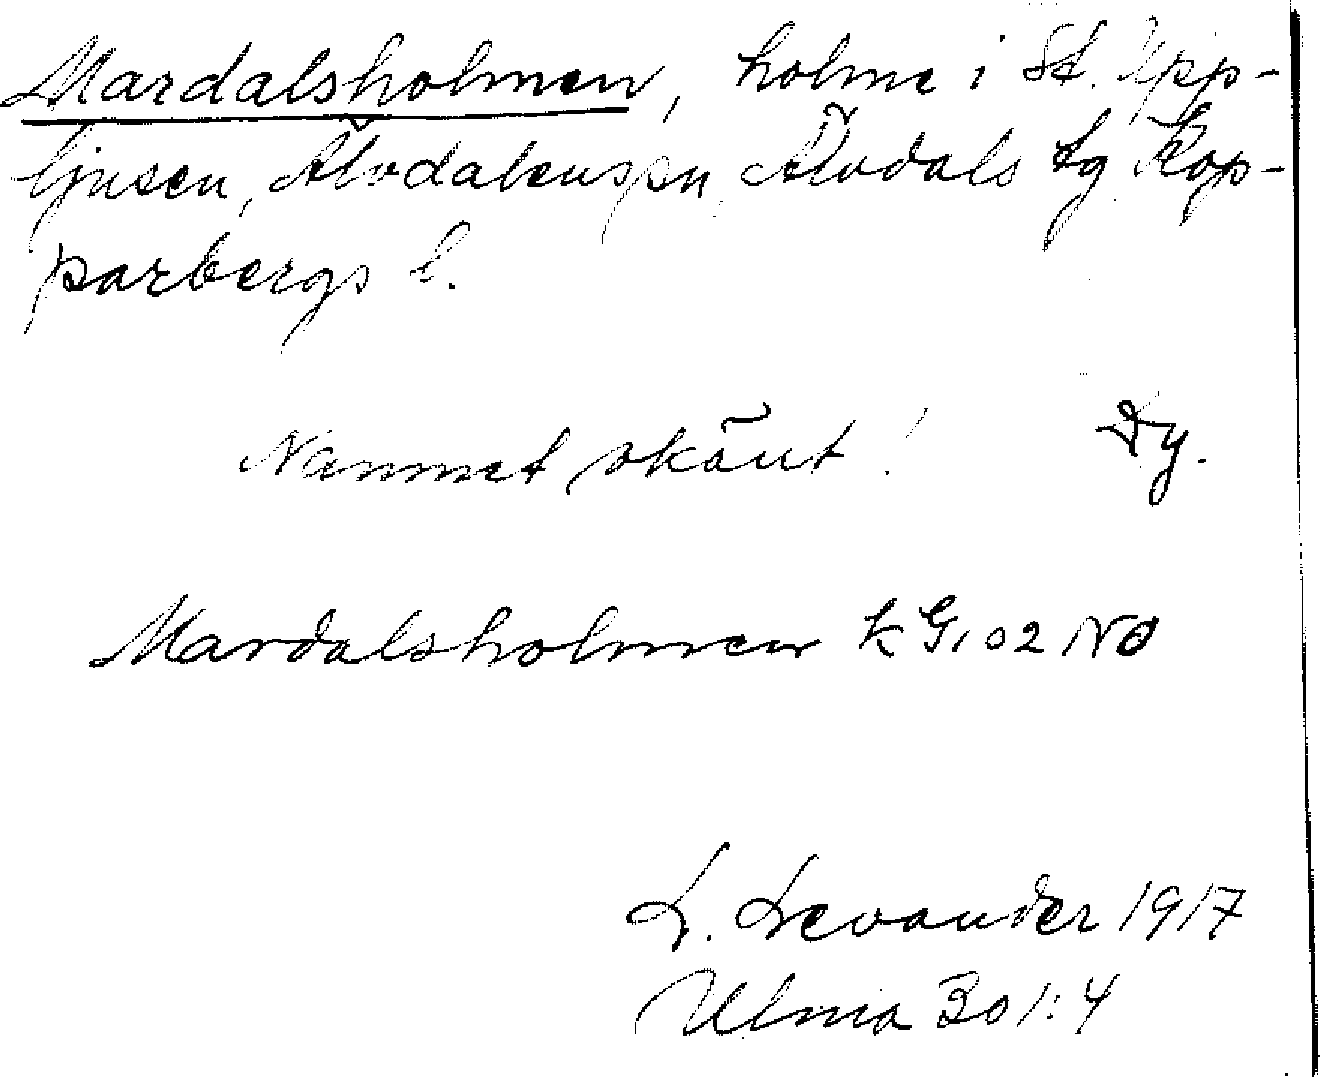 Mardalsholmen, holme i St. Upp-
ljusen, Älvdalens sn, Älvdals tg Kop-
parbergs l.
Namnet okänt! Dy.
Mardalsholmen k G 102 NO
L. Levander 1917
Ulma Bo 1:4